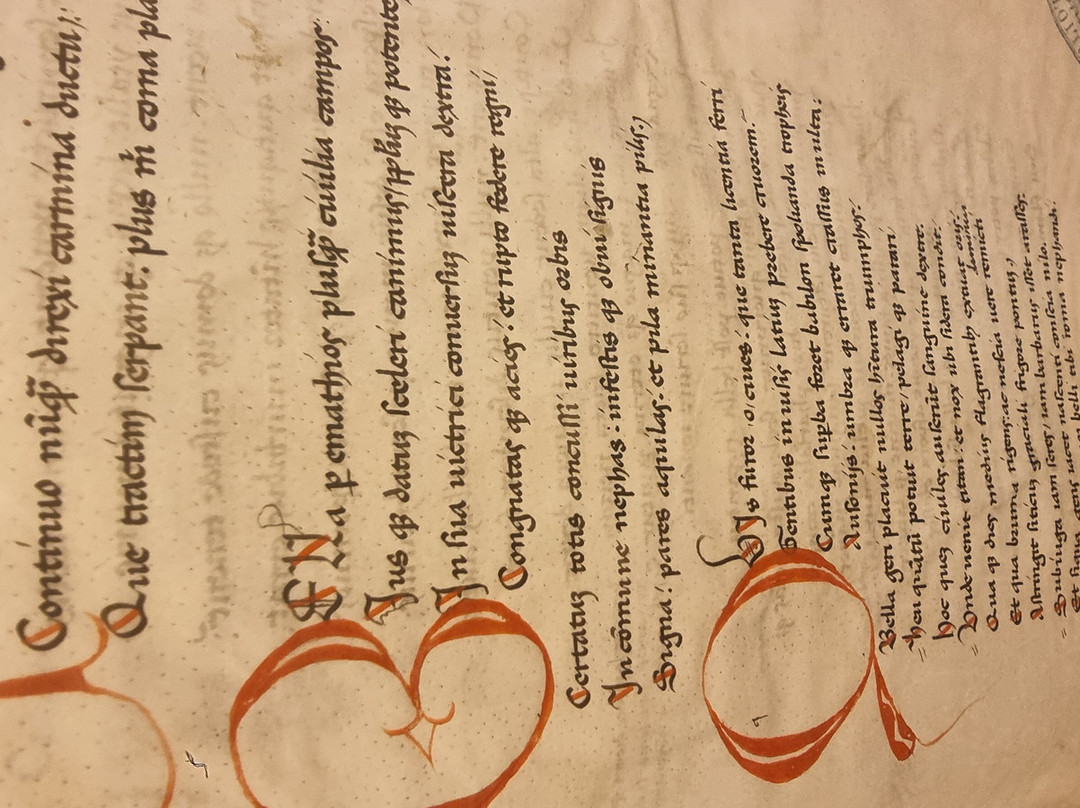 Continuo nūq̄ direxi carmina ductu;
Que tractim serpant: plus m̄ coma pla
BElla per emathios plusq̄ ciuilia campos
Iusq; datuz sceleri canimus, pplūq; potente
In sua uictrici conuersuz uiscera dextra:
Congnatasq; acies: et rupto federe regni/
Certatuz totis concussi uiribus orbis
In cōmune nephas: infestisq; obuia signis
Signa: pares aquilas: et pila minantia pilis.
QVis furor o ciues: que tanta licentia ferri
Gentibus inuisis latiuz prebere cruorem:
Cumq; suꝑba foret babilon spolianda tropheis
Ausonijs: umbraq; erraret crassus inulta:
Bella geri placuit nullos hītura triumphos:
Heu quātū potuit terre/ pelagiq; parari
Hoc quez ciuiles auserūt sanguine dextre:
Vnde uenit titan: et nox ubi sidera condit:
Quaq; dies medius flagrantibꝫ
Et qua bruma rigens ac nescia uere remicti
glaciali frigore pontuz;
iam seres/ iam barbarus isset araxes:
iacet nascenti conscia nilo.
belli tibi roma nephandi.